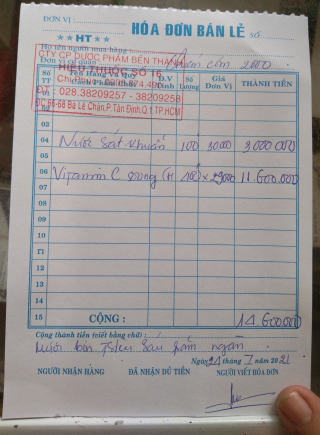 ĐƠN VỊ
HÓA ĐƠN BÁN LẺ
**HT**
SỐ:
Họ tên người mua hàng
CTY CP DƯỢC PHẨM BẾN THÀNH
HIỆU THUỐC SỐ 16
ĐT: 028.38209257 - 38209258
ĐC: 66-68 Bà Lê Chân, P. Tân Định, Q.1, TP.HCM
Số TT
Tên Hàng Và Quy Cách Phẩm
Đ.V Tính
Số Lượng
Giá Đơn Vị
THÀNH TIỀN
01
02
03
04 Nước Sát khuẩn 100 30.000 3.000.000
05
06 Vitamin C 11.600.000
07
08
09
10
11
12
13
14
15 CỘNG : 14.600.000
Cộng thành tiền (viết bằng chữ) :
Mười bốn triệu sáu trăm ngàn
Ngày 24 tháng 7 năm 2021
NGƯỜI NHẬN HÀNG ĐÃ NHẬN ĐỦ TIỀN NGƯỜI VIẾT HÓA ĐƠN